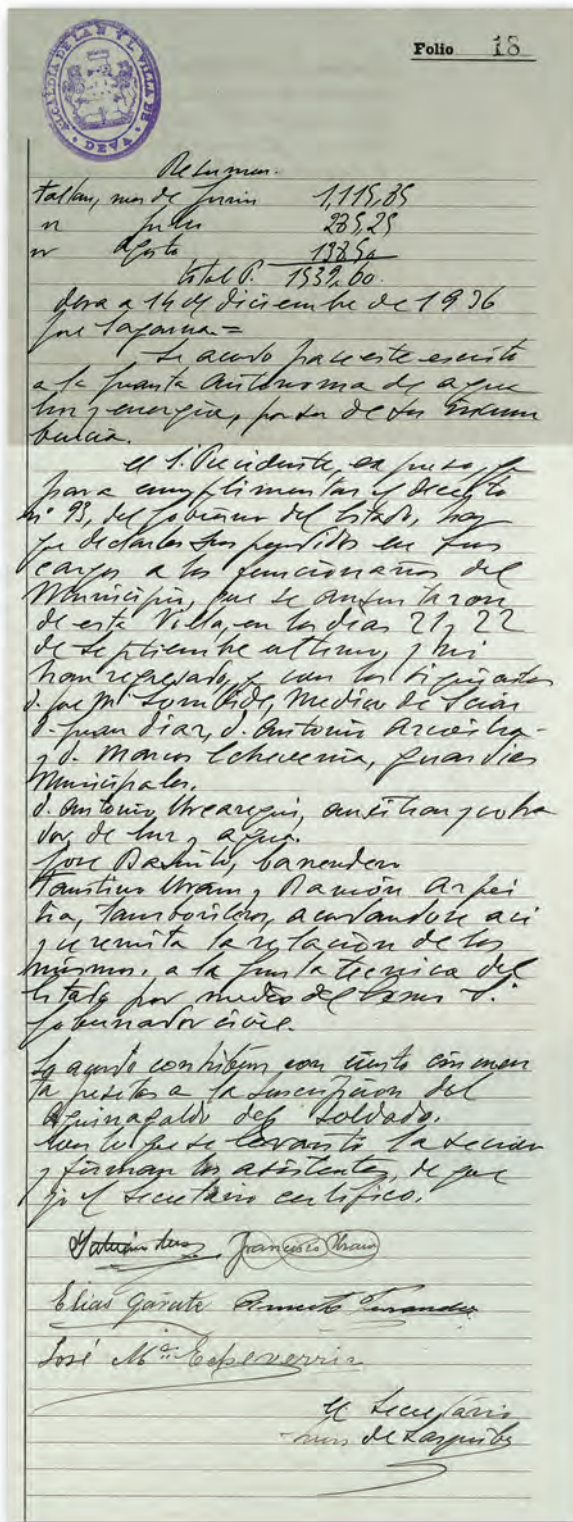 Folio 18
ALCALDIA DE LA N. Y L. VILLA DE DEVA
Resumen.
faltan, mes de Junio 1,115,85
" Julio 285,25
" Agosto 138,50
total P. 1539,60.
Deva a 14 de diciembre de 1936
José Sagarna.=
Se acordo pase este escrito
a la Juanta Autonoma de agua
luz y energia, por ser de su incum
bencia.
El S. Precidente, expuso, q
para cumplimentar el decreto
nº 93, del Gobierno del Estado, hay
que declarlos suspendidos en sus
cargos a los funcionarios del
Municipio, que se ausentaron
de esta Villa, en los dias 21 y 22
de septiembre ultimo, y no
han regresado, y son los siguientes
d. José Mª Medico de
d. Juan diaz, d. Antonio
y d. Marcos Echeverria, guardias
Municipales.
d. Antonio Urcaregui, auxiliar y cobra
dor de luz y agua.
José Basurto, barrendero
Faustino Urain y Ramón Arpei
tia, tamborileros, acordandose aci
y se remita la relación de los
mismos, a la Junta tecnica del
Estado por medio del Excmo S.
Gobernador civil.
Se acordo contribuir con ciento cincuen
ta pesetas a la suscripcion del
Aguinaldo del soldado.
Con lo que se levantó la secion
y firman los asistentes, de que
yo el secretario certifico.
Francisco Urain
Elias Gárate Ernesto
José Mª Echeverria
El Secretario